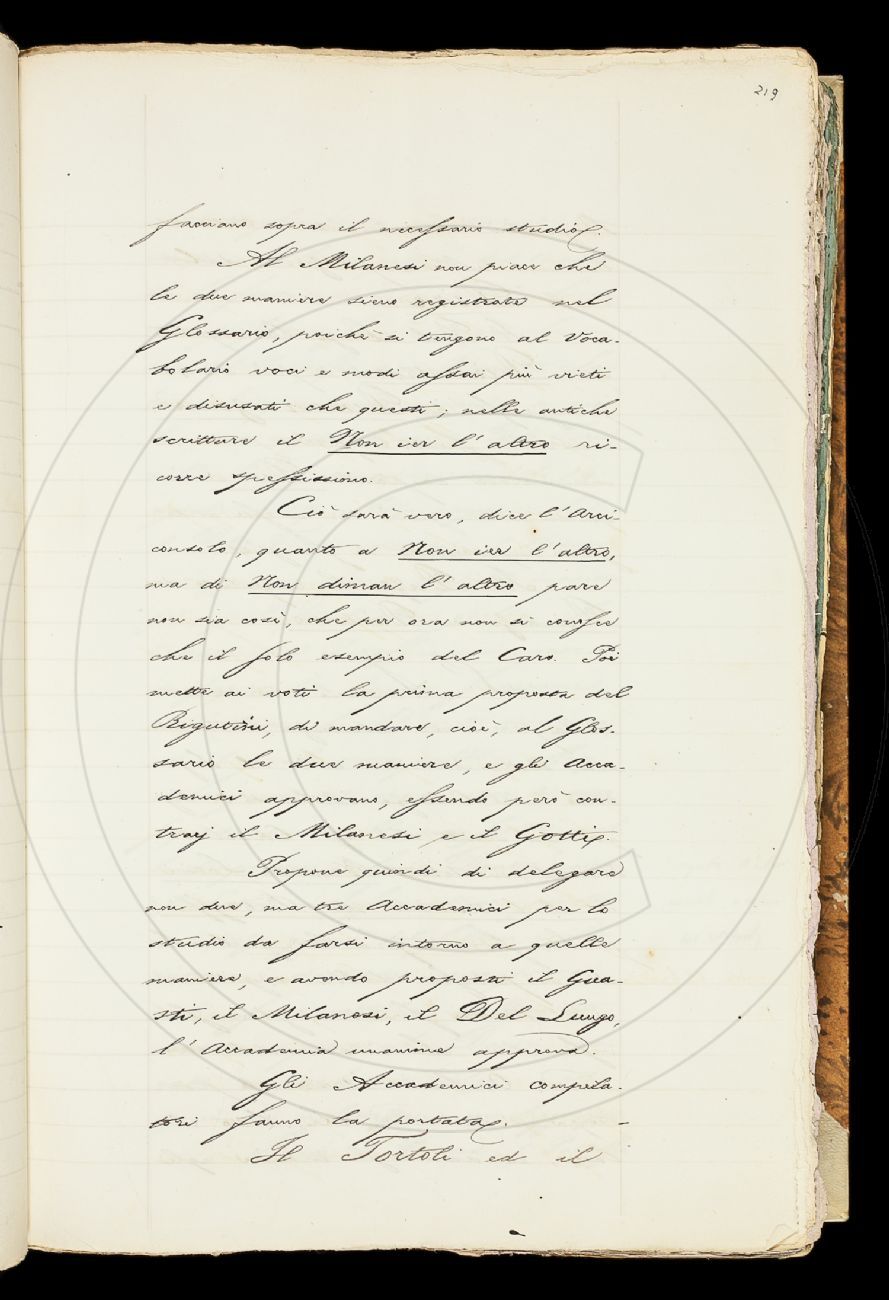 219
facciano sopra il necessario studio.
Al Milanesi non piace che
le due maniere sieno registrate nel
Glossario, poichè si tengono al Voca-
bolario voci e modi assai più vieti
e disusati che questi; nelle antiche
scritture il Non ier l'altro ri-
corre spessissimo.
Ciò sarà vero, dice l'Arci-
consolo, quanto a Non ier l'altro,
ma di Non diman l'altro pare
non sia così, che per ora non si conosce
che il solo esempio del Caro. Poi
mette ai voti la prima proposta del
Rigutini, di mandare, cioè, al Glos-
sario le due maniere, e gli Acca-
demici approvano, essendo però con-
trarj il Milanesi e il Gotti.
Propone quindi di delegare
non due, ma tre Accademici per lo
studio da farsi intorno a quelle
maniere, e avendo proposti il Gua-
sti, il Milanesi, il Del Lungo,
l'Accademia unanime approva.
Gli Accademici compila-
tori fanno la portata.
Il Tortoli ed il